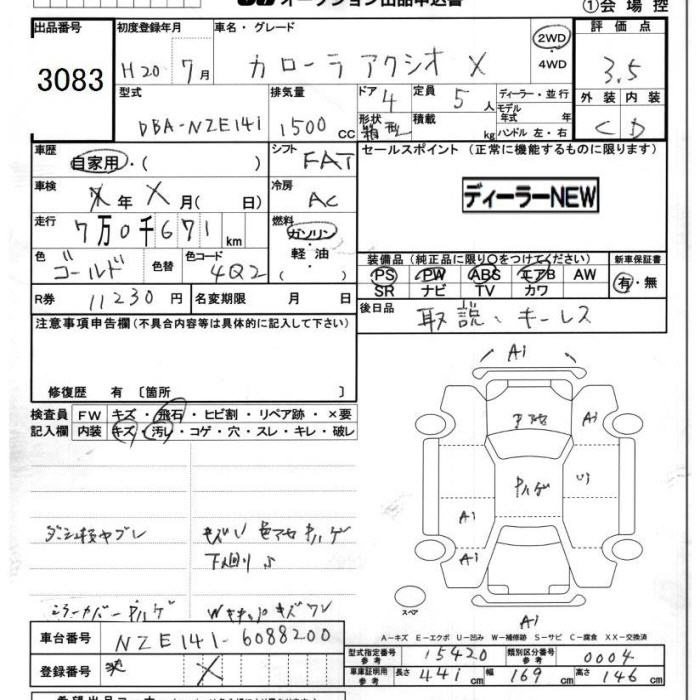 オークション出品申込書
①会場控
出品番号
3083
初度登録年月
H20年7月
車名・グレード
カローラアクシオ X
2WD
・
4WD
評価点
3.5
型式
DBA-NZE141
排気量
1500 CC
ドア 4
形状 箱型
定員 5 人
積載 kg
ディーラー・並行
モデル年式 年
ハンドル 左・右
外装 内装
C D
車歴
自家用・( )
シフト
FAT
セールスポイント (正常に機能するものに限ります)
ディーラーNEW
車検
X年X月( 日)
冷房
AC
走行
7万0千671km
燃料
ガソリン
・
軽油
・
( )
色
ゴールド
色替
色コード
4Q2
装備品 (純正品に限り○をつけてください)
PS PW ABS エアB AW
SR ナビ TV カワ
新車保証書
有・無
R券 11230円
名変期限 月 日
後日品 取説、キーレス
注意事項申告欄 (不具合内容等は具体的に記入して下さい)
修復歴 有〔箇所 〕
検査員
記入欄
FW キズ・飛石・ヒビ割・リペア跡・×要
内装 キズ・汚レ・コゲ・穴・スレ・キレ・破レ
Ai
Ai
Ai
Ai
Ai
スペア
下回りS
ミラーカバーキハゲ
A-キズ E-エクボ U-凹み W-補修跡 S-サビ C-腐食 XX-交換済
車台番号 NZE141-6088200
登録番号 X
型式指定番号 参考 15420
類別区分番号 参考 0004
車庫証明用 参考 長さ 441cm 幅 169cm 高さ 146cm